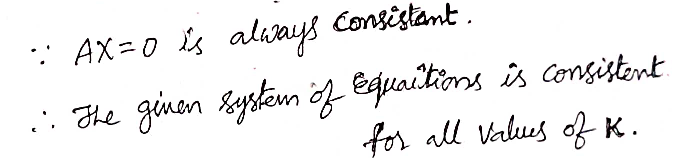 ∵ AX=0 is always consistant.
∴ The given system of Equaitions is consistent
for all values of K.